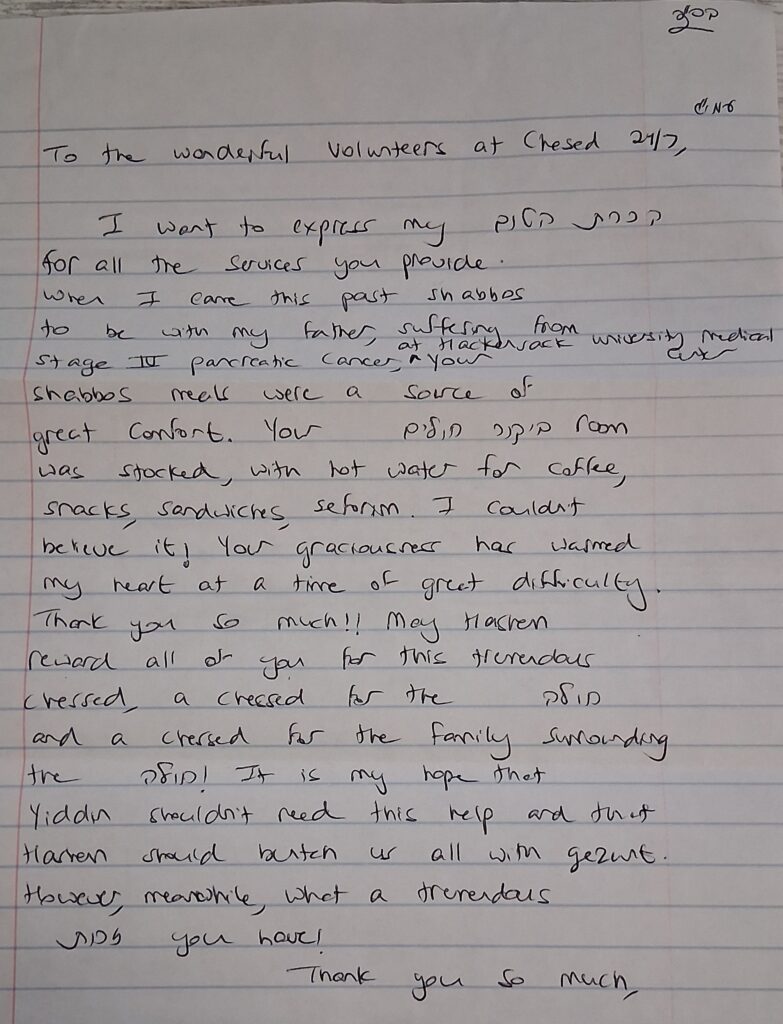 בס"ד
To the wonderful volunteers at Chesed 24/7,
I want to express my הכרת הטוב
for all the services you provide.
When I came this past Shabbos
to be with my father, suffering from
at Hackensack University Medical Center
stage IV pancreatic cancer, ^ your
Shabbos meals were a source of
great comfort. Your ביקור חולים room
was stocked, with hot water for coffee,
snacks, sandwiches, seforim. I couldn't
believe it! Your graciousness has warmed
my heart at a time of great difficulty.
Thank you so much!! May Hashem
reward all of you for this tremendous
chessed, a chessed for the חולה
and a chessed for the family surrounding
the חולה! It is my hope that
Yiddin shouldn't need this help and that
Hashem should bentch us all with gezunt.
However, meanwhile, what a tremendous
זכות you have!
Thank you so much,